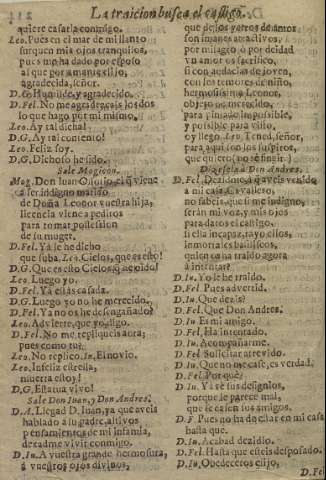 La traicion busca el castigo.
quiere casarla conmigo.
Leo. Pues en el mar de mi llanto
surquen mis ojos tranquilos,
pues me ha dado por esposo
al que por amante elijo,
agradecida, señor.
D. G. Humilde, y agradecido.
D. Fel. No me agradezcais los dos
lo que hago por mi mismo.
Leo. Ay tal dicha!
D. G. Ay tal contento!
Leo. Feliz soy.
D. G. Dichoso he sido.
Sale Mogicon.
Mog. Don Juan viene
a ser indigno marido
de Doña Leonor vuestra hija,
licencia viene a pediros
para tomar possession
de su muger.
D. Fel. Ya le he dicho
que suba. Leo. Cielos, que es esto!
D. G. Que es esto Cielos, que he oido!
Leo. Luego yo.
D. Fel. Ya estás casada.
D. G. Luego yo no he merecido.
D. Fel. Ya no os he desengañado?
Leo. Advierte, que yo, digo.
D. Fel. No me repliqueis aora;
pues como tu?
Leo. No replico. In. El novio.
Leo. Infeliz estrella,
muerta estoy!
D. G. Estatua vivo!
Sale Don Juan, y Don Andres.
D. A. Llegad D. Juan, ya que aveis
hablado a su padre, altivos
pensamientos de mi infamia,
dexadme vivir conmigo.
D. Iu. A vuestra grande hermosura,
à vuestros ojos divinos,
que de los yerros de amor
son imanes atractivos,
por milagro ò por deidad
vn amor os sacrifico,
si con audacias de joven,
con los temores de niño,
hermosissima Leonor,
objeto no merecido,
para pintado impossible,
y possible para visto,
oy llego. Leo. Tened, señor,
para aqui son los suspiros,
que quiero (no sè fingir.)
D. Fel. Dezidme, a què aveis venido
a mi casa, Cavallero,
no sabeis, que si me indigno,
serán mi voz, y mis ojos
para daros el castigo,
si ella incapaz, rayo ellos,
inmortales basiliscos,
quien os ha traido aora
à intentar?
D. Iu. Yo le he traido.
D. Fel. Pues advertid.
D. Iu. Que dezis?
D. Fel. Que Don Andres.
D. Iu. Es mi amigo.
D. Fel. Ha intentado.
D. Iu. Acompañarme.
D. Fel. Solicitar atrevido.
D. Iu. Que no os case, es verdad.
D. Fel. Por què?
D. Iu. Ya sè sus designios,
porque le parece mal,
que se casen sus amigos.
D. F. Pues no ha de estar en mi casa
hasta que.
D. Iu. Acabad dezidlo.
D. Fel. Hasta que esteis desposado.
D. Iu. Obedeceros elijo,
D. Fel